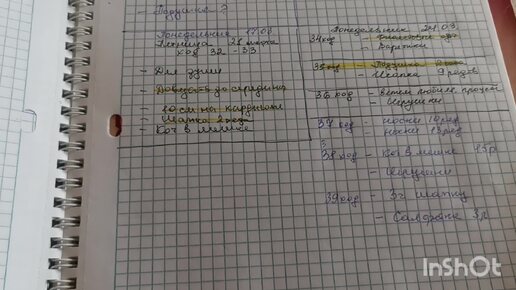 Подушке ?
Понедельник 17.03
Пятница 28 марта
ход 32 - 33
- Для души
- Довязать до середины
- 10 см на кардигане
- Шапка 2 ряд
- Кот в мешке
Понедельник 24.03
34 ход -
Варежки
35 ход - Подушка
- Шапка 9 рядов
36 ход -
- Игрушки
37 ход - носки 10 ряд
- носки 13 ряд
38 ход - Кот в мешке 15 р
- Игрушки
39 ход - Зч шапку
- Салфетка 3 р
InShot